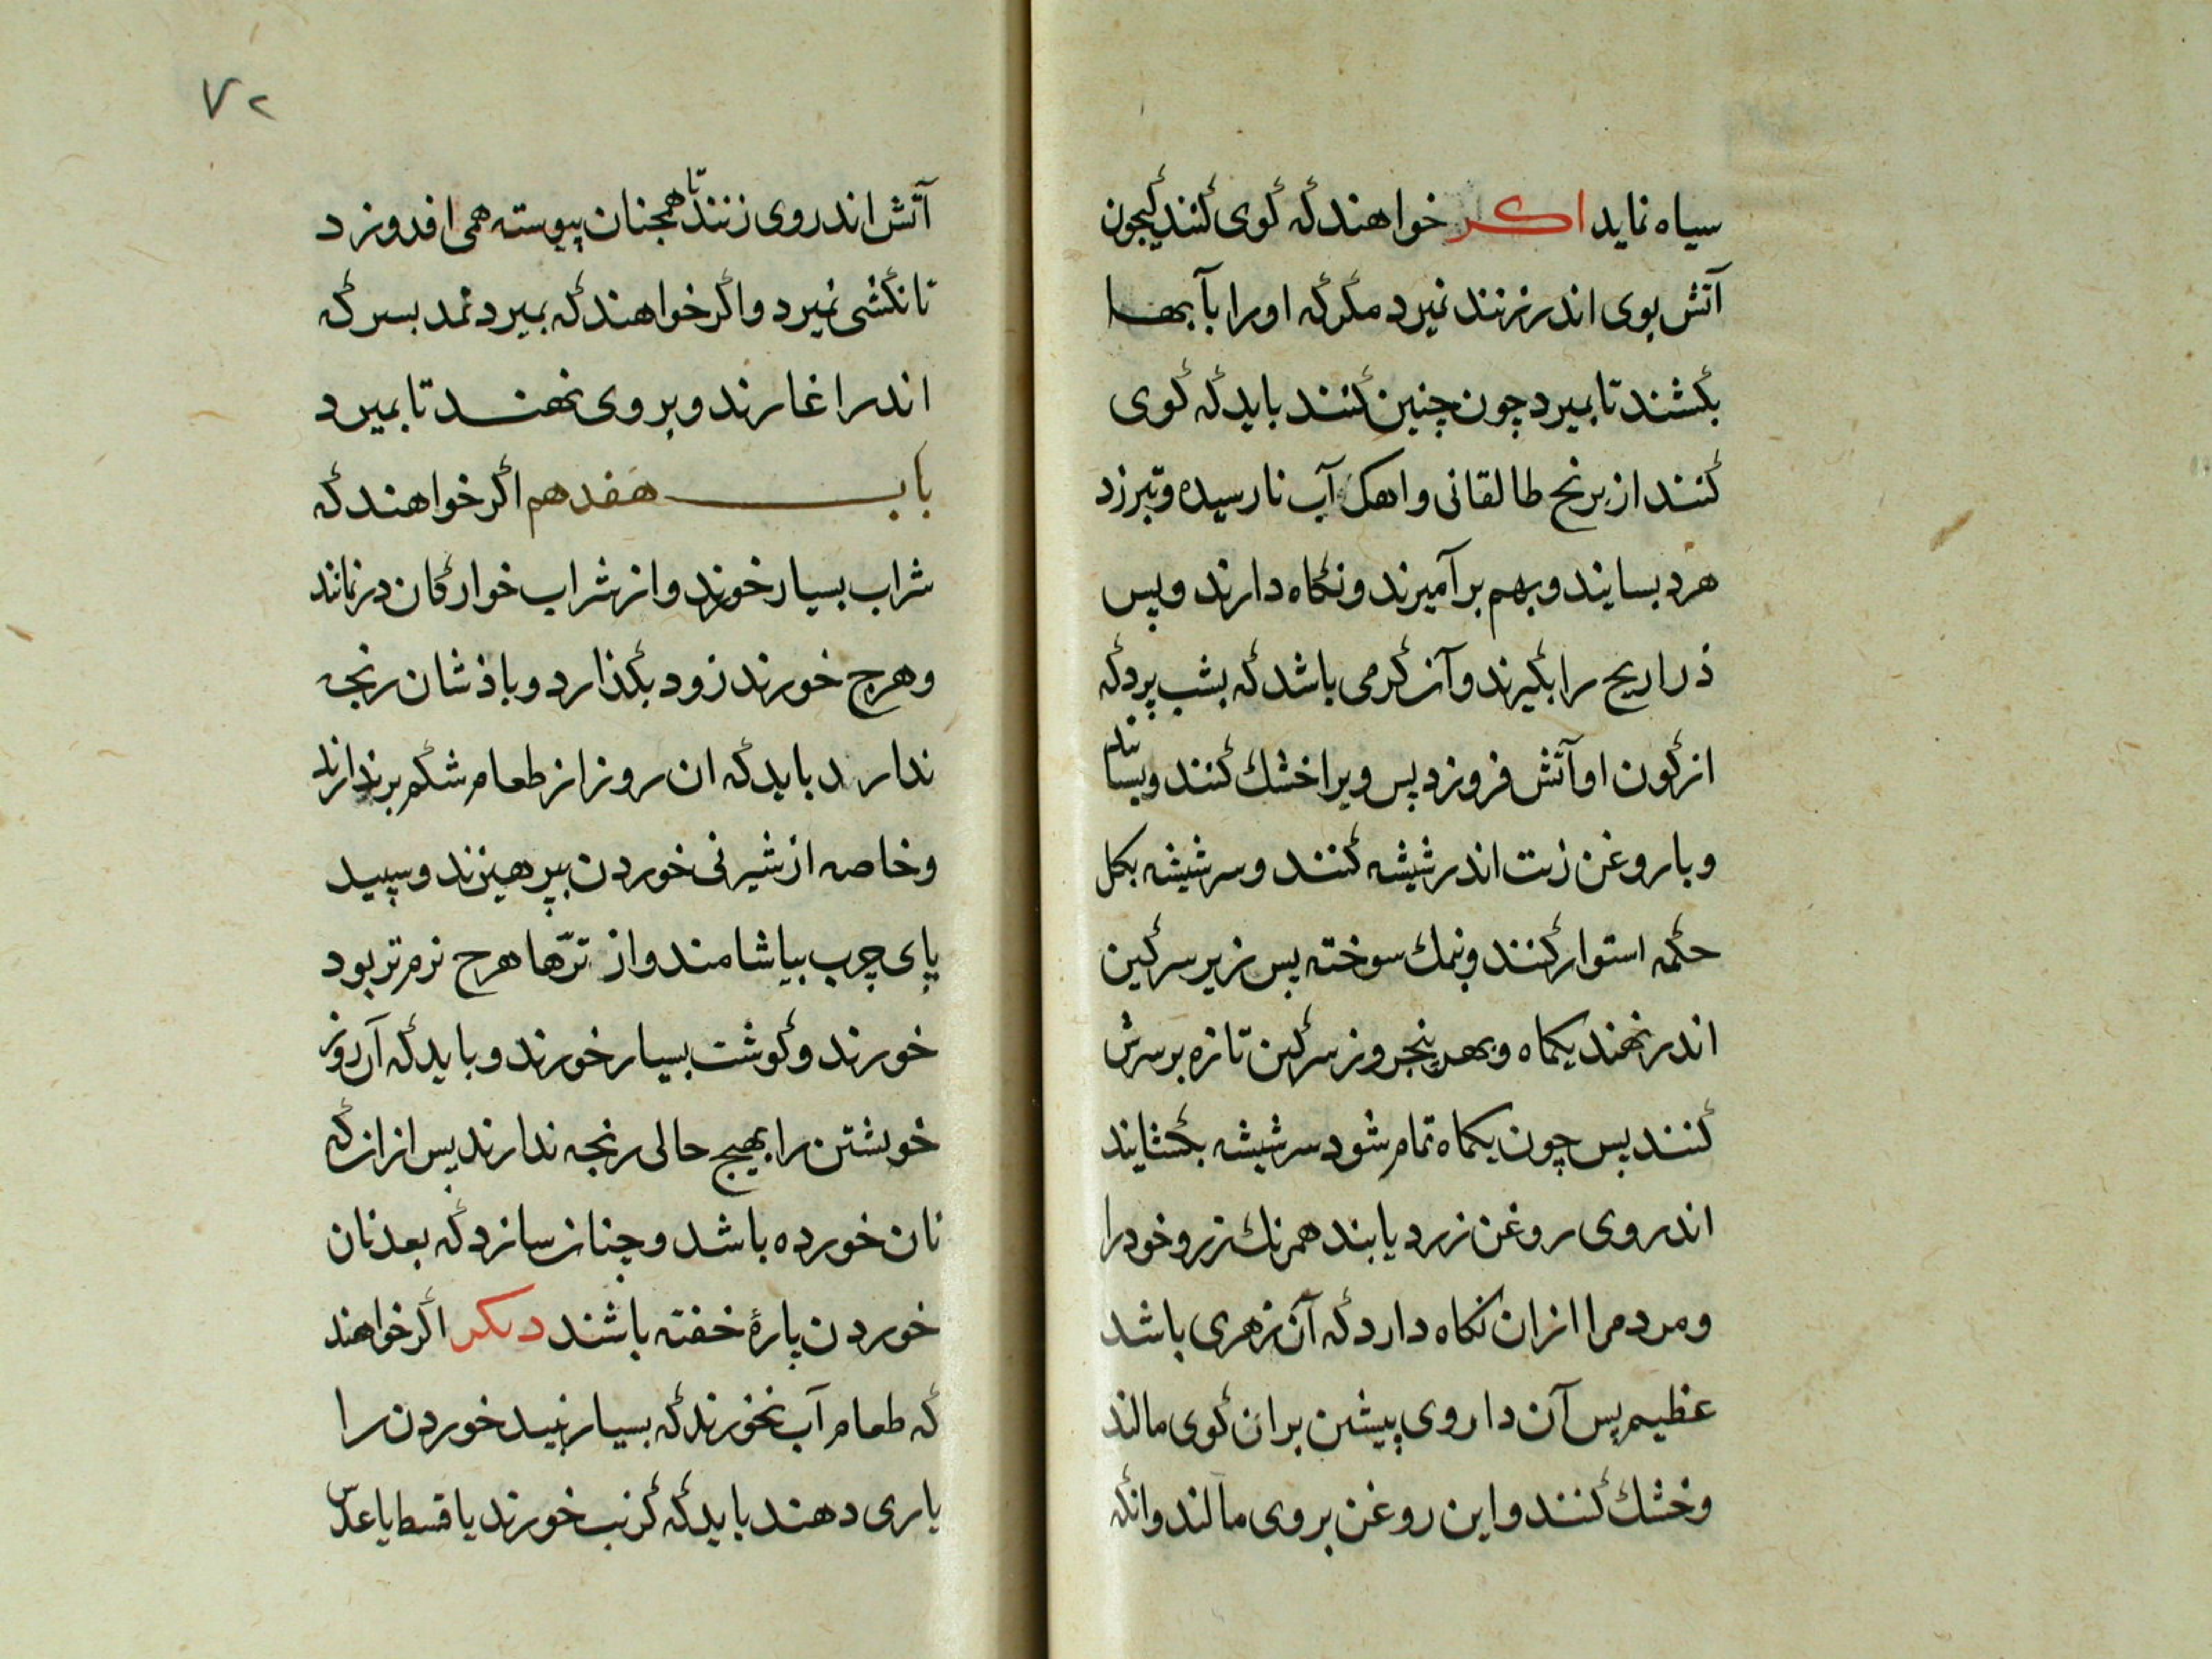 سیاه نماید اکر خواهند که کوی کنند کیجون
آتش بوی اندر زنند نمیرد مکر که اورا بآبها
بکشند تا بمیرد چون چنین کنند باید که کوی
کنند از برنج طالقانی واهک آب نارسیده وتبرزد
هرد بسایند وبهم بر آمیزند ونکاه دارند وپس
ذراریح را بکیرند وآن کرمی باشد که بشب پرد که
از کون او آتش فروزد پس ویرا خشك کنند وبسایند
وبا روغن زیت اندر شیشه کنند وسر شیشه بکل
حکمه استوار کنند ونمك سوخته پس زیر سرکین
اندر نهند یکماه وبهر پنجروز سرکین تازه بر سرش
کنند پس چون یکماه تمام شود سر شیشه بکشایند
اندر وی روغن زرد یابند همرنك زر وخود را
ومردم را ازان نکاه دارد که آن زهری باشد
عظیم پس آن داروی پیشین بران کوی مالند
وخشك کنند واین روغن بروی مالند وانکه
۷۲
آتش اندر وی زنند تا همجنان پیوسته همی افروزد
تا نکشی نمیرد واکر خواهند که بمیرد نمد بسرکه
اندر اغارند وبروی نهند تا بمیرد
باب هفدهم اکر خواهند که
شراب بسیار خورند واز شراب خوارکان در نمانند
وهرچ خورند زود بکذارد وباذشان رنجه
ندارد باید که ان روز از طعام شکم بر ندارند
وخاصه از شیرنی خوردن بپرهیزند وسپید
پای چرب بیاشامند واز ترّها هرچ نرمتر بود
خورند وکوشت بسیار خورند وباید که آن روز
خویشتن را بهیچ حالی رنجه ندارند پس ازان که
نان خورده باشد وچنان سازد که بعد نان
خوردن پارهٔ خفته باشند دیکر اکر خواهند
که طعام آب نخورند که بسیار نبید خوردن را
یاری دهند باید که کرنب خورند یا قسط یا عدس